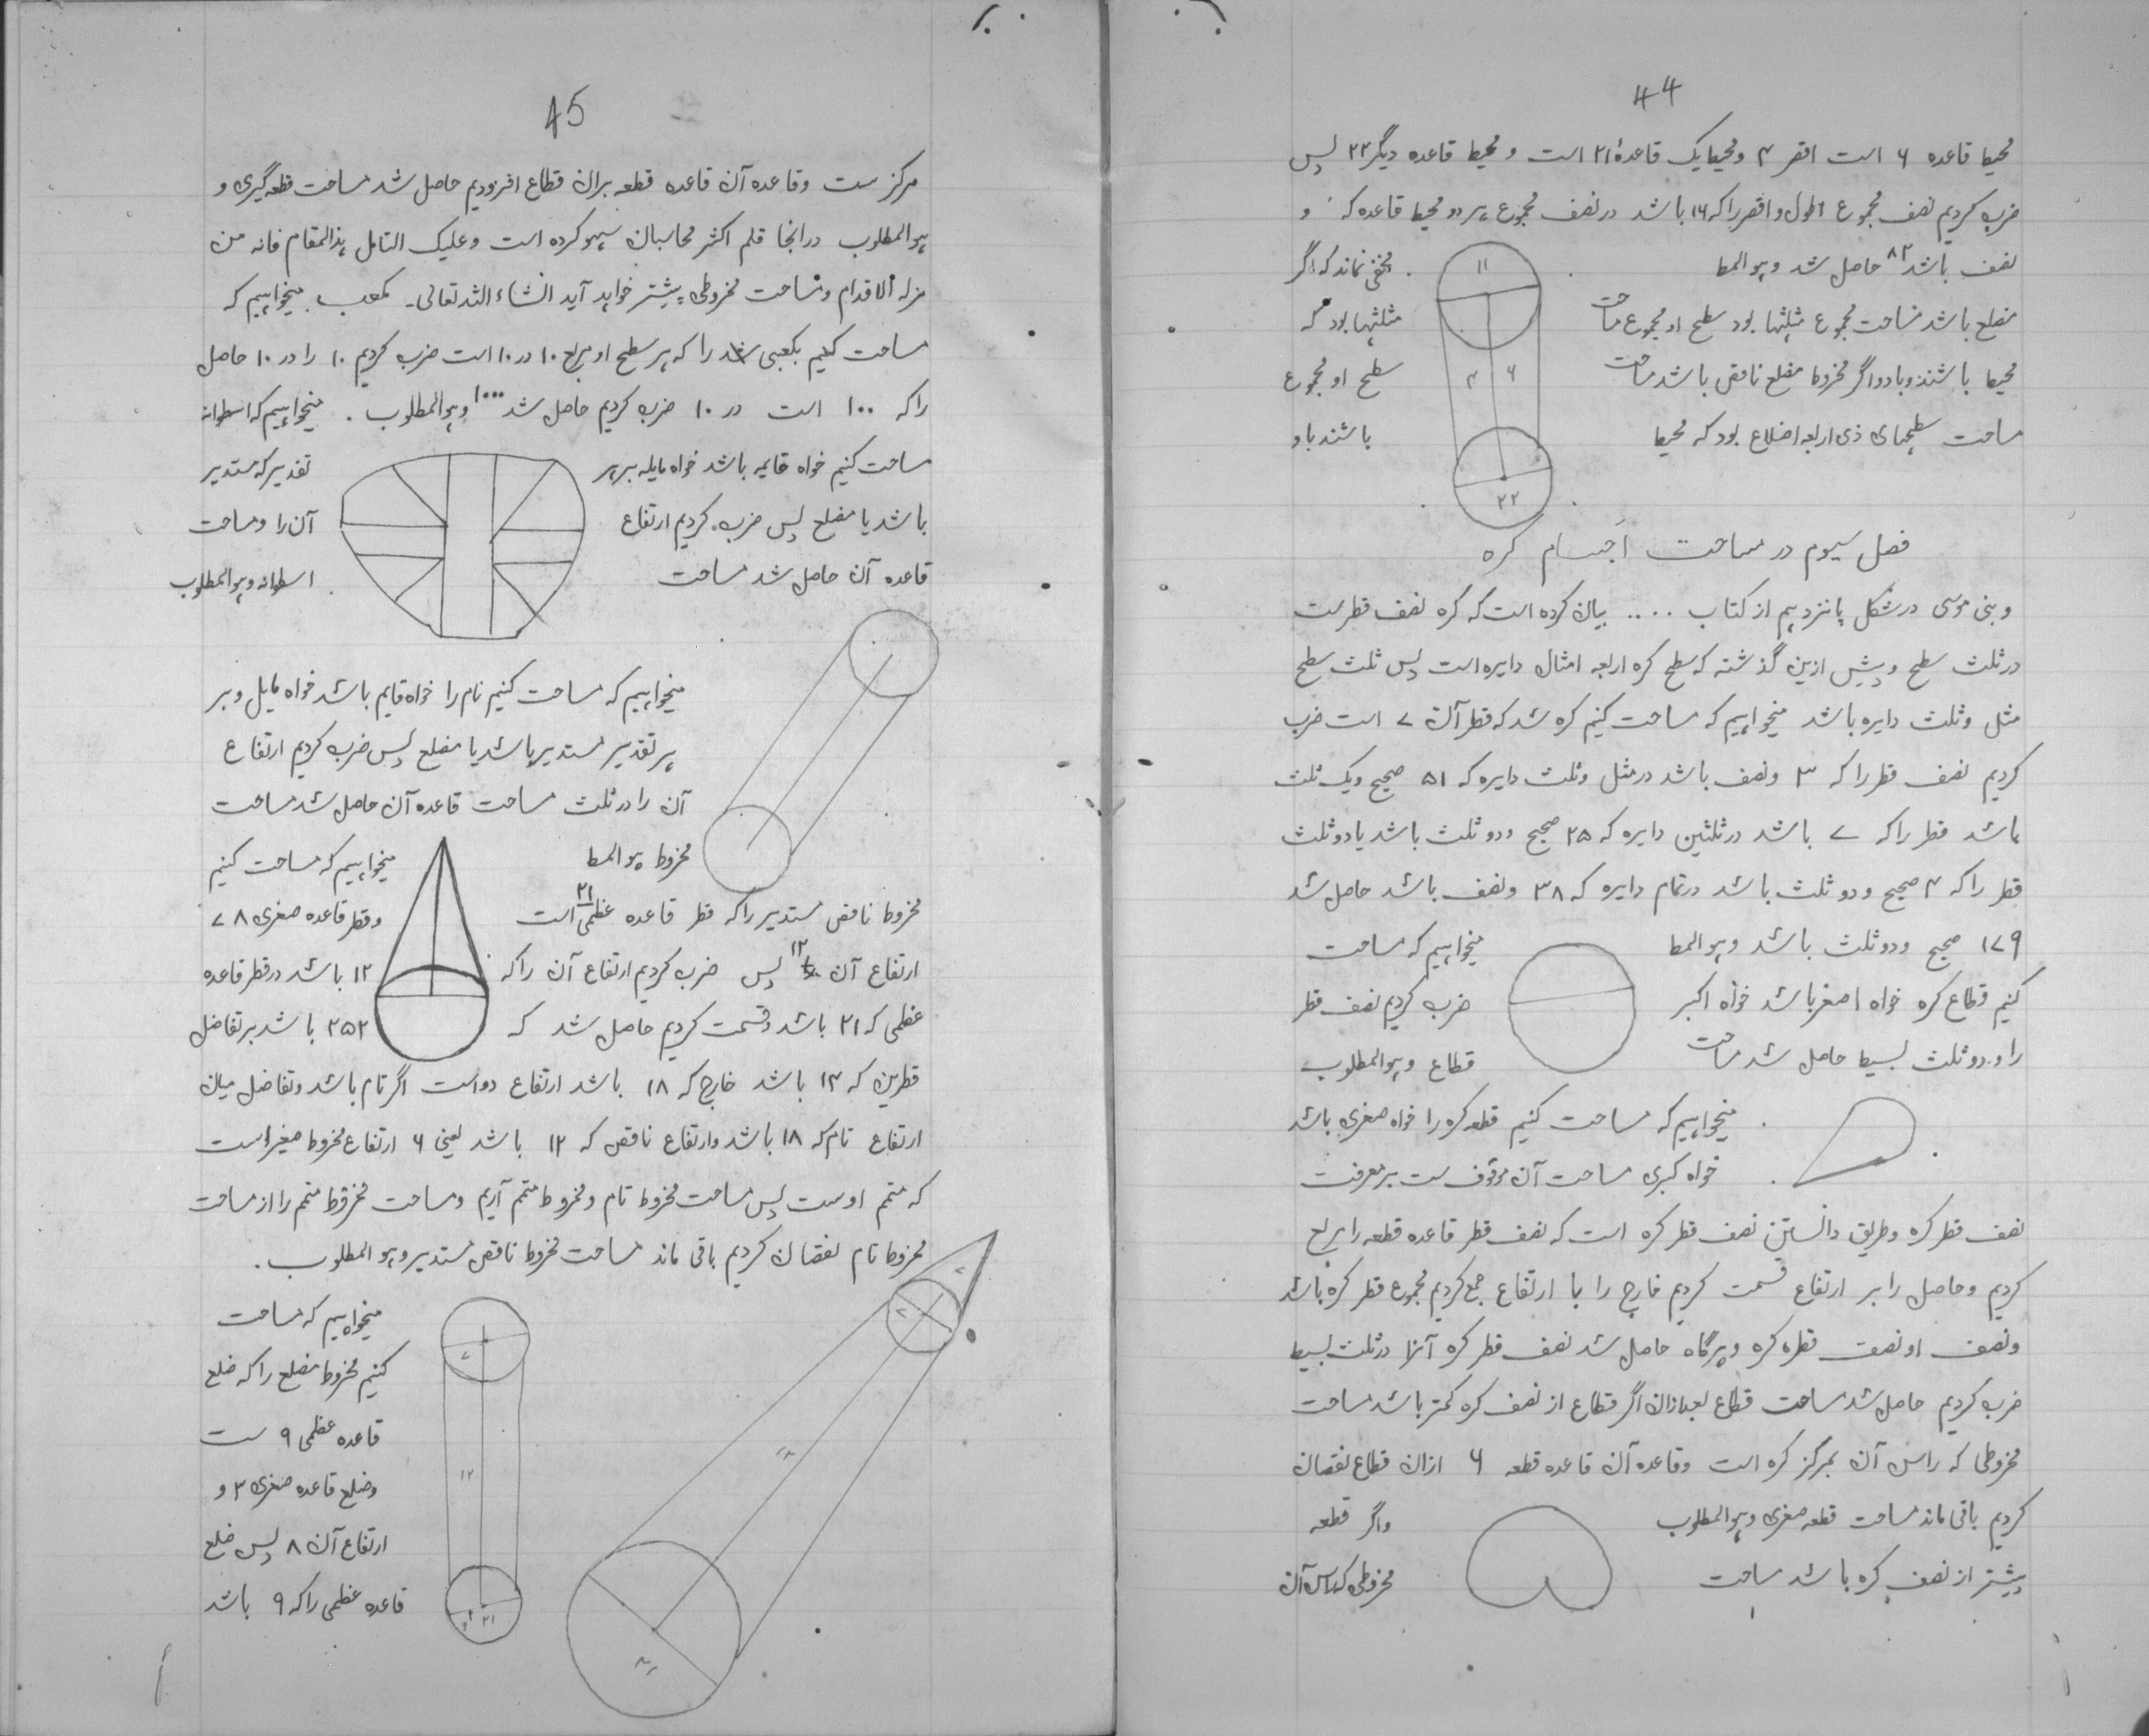 44
محیط قاعده ۶ است اقصر ۴ و محیط یک قاعدهٔ ۲۱ است و محیط قاعده دیگر ۲۲ پس
ضرب کردیم نصف مجموع اطول و اقصر را که ۱۶ باشد در نصف مجموع هر دو محیط قاعده که و
نصف باشد ۸۲ حاصل شد و هو المط
مخفی نماند که اگر
۱۱
مضلع باشد مساحت مجموع مثلثها بود سطح او مجموع مساحت
مثلثها بود که
محیط باشند و با دو اگر مخروط مضلع ناقص باشد مساحت
سطح او مجموع
۴ ۶
مساحت سطحهای ذی اربعه اضلاع بود که محیط
باشند باو
۲۲
فصل سیوم در مساحت اجسام کره
و بنی موسی در شکل پانزدهم از کتاب .... بیان کرده است که کره نصف قطرست
در ثلث سطح و پیش ازین گذشته که سطح کره اربعه امثال دایره است پس ثلث سطح
مثل و ثلث دایره باشد میخواهیم که مساحت کنیم کره شد که قطر آن ۷ است ضرب
کردیم نصف قطر را که ۳ و نصف باشد در مثل و ثلث دایره که ۵۱ صحیح و یک ثلث
باشد قطر را که ۷ باشد در ثلثین دایره که ۲۵ صحیح و دو ثلث باشد یا دو ثلث
قطر را که ۴ صحیح و دو ثلث باشد در تمام دایره که ۳۸ و نصف باشد حاصل شد
۱۷۹ صحیح و دو ثلث باشد و هو المط
میخواهیم که مساحت
کنیم قطاع کره خواه اصغر باشد خواه اکبر
ضرب کردیم نصف قطر
را در دو ثلث بسیط حاصل شد مساحت
قطاع و هو المطلوب
میخواهیم که مساحت کنیم قطعه کره را خواه صغری باشد
خواه کبری مساحت آن موقوف ست بر معرفت
نصف قطر کره و طریق دانستن نصف قطر کره است که نصف قطر قاعده قطعه را مربع
کردیم و حاصل را بر ارتفاع قسمت کردیم خارج را با ارتفاع جمع کردیم مجموع قطر کره باشد
و نصف او نصف قطره کره و هرگاه حاصل شد نصف قطر کره آنرا در ثلث بسیط
ضرب کردیم حاصل شد مساحت قطاع بعد ازان اگر قطاع از نصف کره کمتر باشد مساحت
مخروطی که راس آن بمرکز کره است و قاعده آن قاعده قطعه ۶ ازان قطاع نقصان
کردیم باقی ماند مساحت قطعه صغری و هو المطلوب
واگر قطعه
بیشتر از نصف کره باشد مساحت
مخروطی که راس آن
45
مرکز ست و قاعده آن قاعده قطعه بران قطاع افزودیم حاصل شد مساحت قطعه گیری و
هو المطلوب درانجا قلم اکثر محاسبان سهو کرده است و علیک التامل هذا المقام فانه من
مزلة الاقدام و مساحت مخروطی پیشتر خواهد آید انشاء الله تعالی۔ کمعب میخواهیم که
مساحت کنیم بکعبی را که هر سطح او مربع ۱۰ در ۱۰ است ضرب کردیم ۱۰ را در ۱۰ حاصل
را که ۱۰۰ است در ۱۰ ضرب کردیم حاصل شد ۱۰۰۰ و هو المطلوب . میخواهیم که اسطوانه
مساحت کنیم خواه قایمه باشد خواه مایله بر هر
تقدیر که مستدیر
باشد یا مضلع پس ضرب کردیم ارتفاع
آن را و مساحت
قاعده آن حاصل شد مساحت
اسطوانه و هو المطلوب
میخواهیم که مساحت کنیم تام را خواه قایم باشد خواه مایل و بر
هر تقدیر مستدیر باشد یا مضلع پس ضرب کردیم ارتفاع
آن را در ثلث مساحت قاعده آن حاصل شد مساحت
مخروط هو المط
میخواهیم که مساحت کنیم
مخروط ناقص مستدیر را که قطر قاعده عظمی ۲۱ است
و قطر قاعده صغری ۷۸
ارتفاع آن ۱۲ پس ضرب کردیم ارتفاع آن را که
۱۲ باشد در قطر قاعده
عظمی که ۲۱ باشد و قسمت کردیم حاصل شد که
۲۵۲ باشد بر تفاضل
قطرین که ۱۴ باشد خارج که ۱۸ باشد ارتفاع دو است اگر تام باشد و تفاضل میان
ارتفاع تام که ۱۸ باشد و ارتفاع ناقص که ۱۲ باشد یعنی ۶ ارتفاع مخروط صغیر است
که متمم اوست پس مساحت مخروط تام و مخروط متمم آریم و مساحت مخروط متمم را از مساحت
مخروط تام نقصان کردیم باقی ماند مساحت مخروط ناقص مستدیر و هو المطلوب .
میخواهیم که مساحت
کنیم مخروط مضلع را که ضلع
قاعده عظمی ۹ ست
و ضلع قاعده صغری ۳ و
ارتفاع آن ۸ پس ضلع
قاعده عظمی را که ۹ باشد
۷
۱۲
۲۱